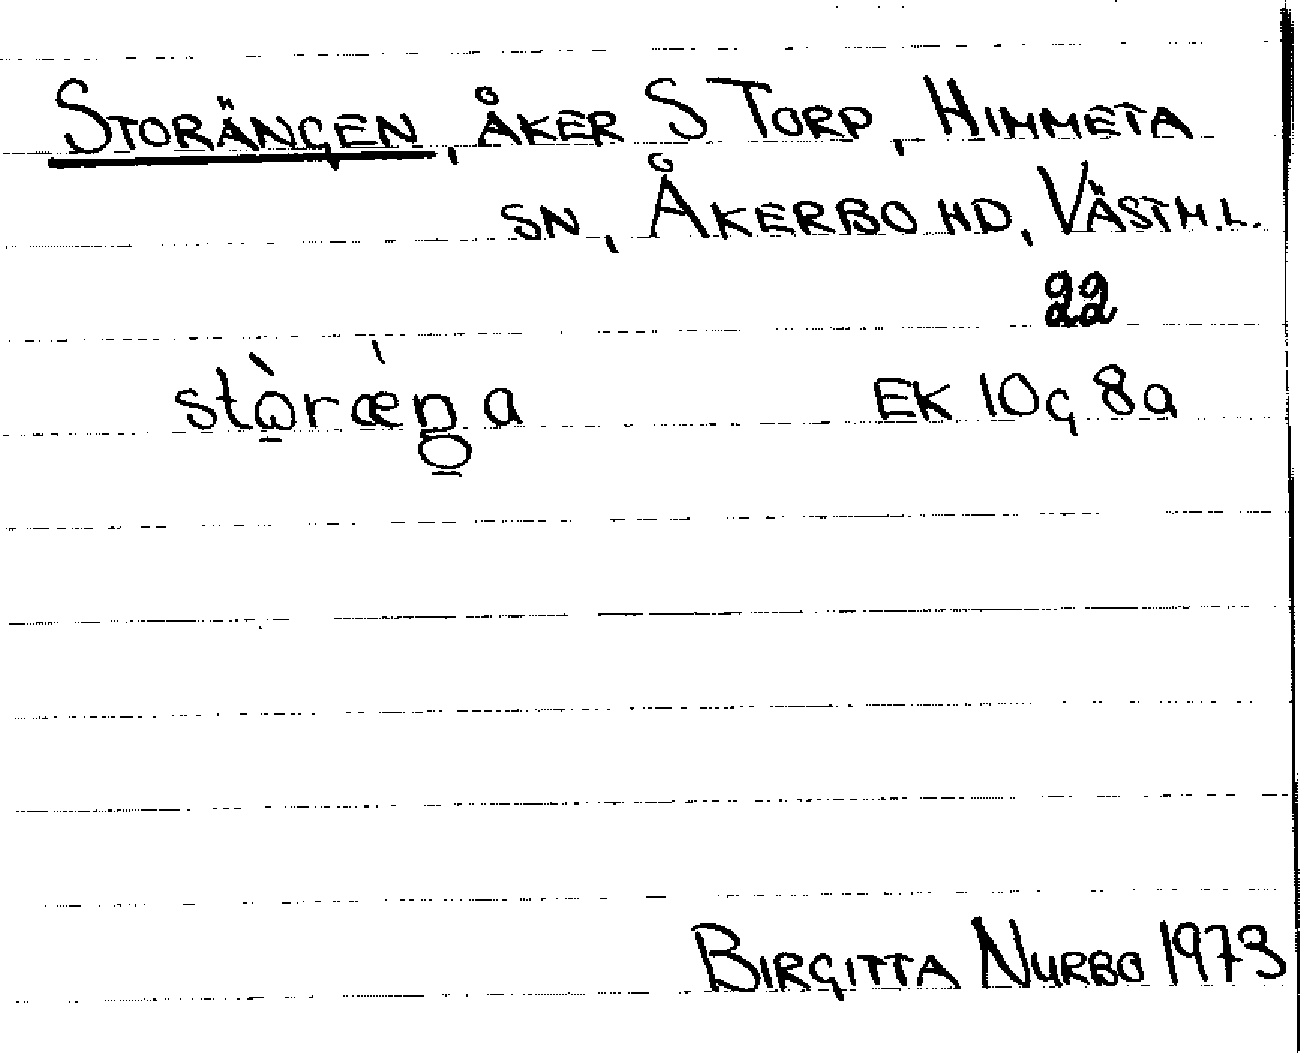 STORÄNGEN, ÅKER S TORP, HIMMETA
SN, ÅKERBO HD, VÄSTM.L.
22
stò̱ræ̀ŋa EK 10g 8a
BIRGITTA NURBO 1973